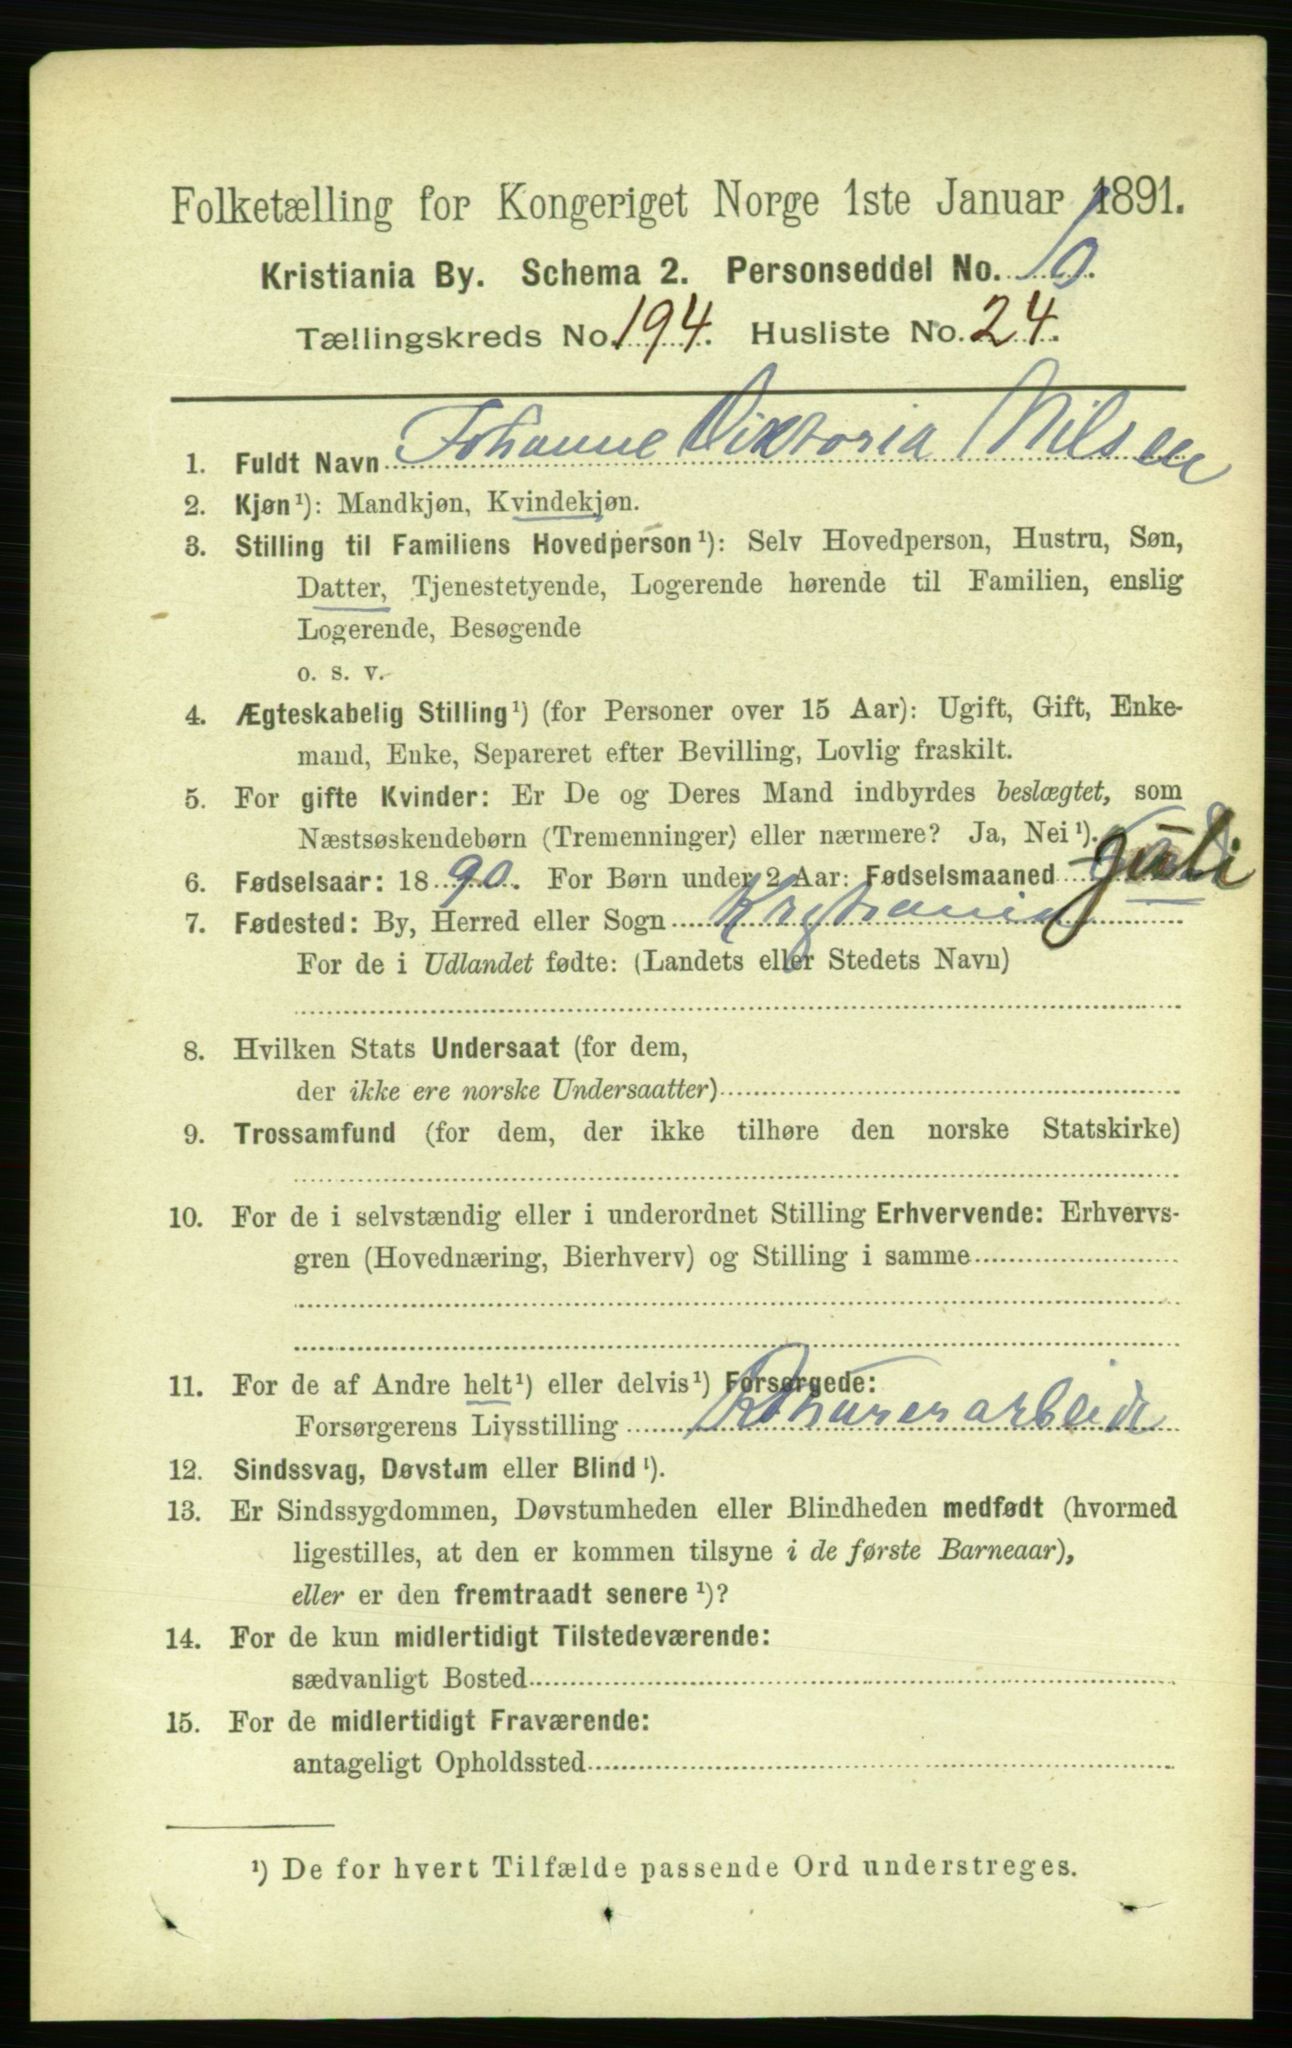 Folketælling for Kongeriget Norge 1ste Januar 1891.
Kristiania By. Schema 2. Personseddel No. 6.
Tællingskreds No. 194. Husliste No. 24.
1. Fuldt Navn Johanne Viktoria Nilsen
2. Kjøn¹): Mandkjøn, Kvindekjøn.
3. Stilling til Familiens Hovedperson¹): Selv Hovedperson, Hustru, Søn,
Datter, Tjenestetyende, Logerende hørende til Familien, enslig
Logerende, Besøgende
o. s. v.
4. Ægteskabelig Stilling¹) (for Personer over 15 Aar): Ugift, Gift, Enke-
mand, Enke, Separeret efter Bevilling, Lovlig fraskilt.
5. For gifte Kvinder: Er De og Deres Mand indbyrdes beslægtet, som
Næstsøskendebørn (Tremenninger) eller nærmere? Ja, Nei¹).
6. Fødselsaar: 1890. For Børn under 2 Aar: Fødselsmaaned juli
7. Fødested: By, Herred eller Sogn Kristiania
For de i Udlandet fødte: (Landets eller Stedets Navn)
8. Hvilken Stats Undersaat (for dem,
der ikke ere norske Undersaatter)
9. Trossamfund (for dem, der ikke tilhøre den norske Statskirke)
10. For de i selvstændig eller i underordnet Stilling Erhvervende: Erhvervs-
gren (Hovednæring, Bierhverv) og Stilling i samme
11. For de af Andre helt¹) eller delvis¹) Forsørgede:
Forsørgerens Livsstilling
12. Sindssvag, Døvstum eller Blind¹).
13. Er Sindssygdommen, Døvstumheden eller Blindheden medfødt (hvormed
ligestilles, at den er kommen tilsyne i de første Barneaar),
eller er den fremtraadt senere¹)?
14. For de kun midlertidigt Tilstedeværende:
sædvanligt Bosted
15. For de midlertidigt Fraværende:
antageligt Opholdssted
¹) De for hvert Tilfælde passende Ord understreges.